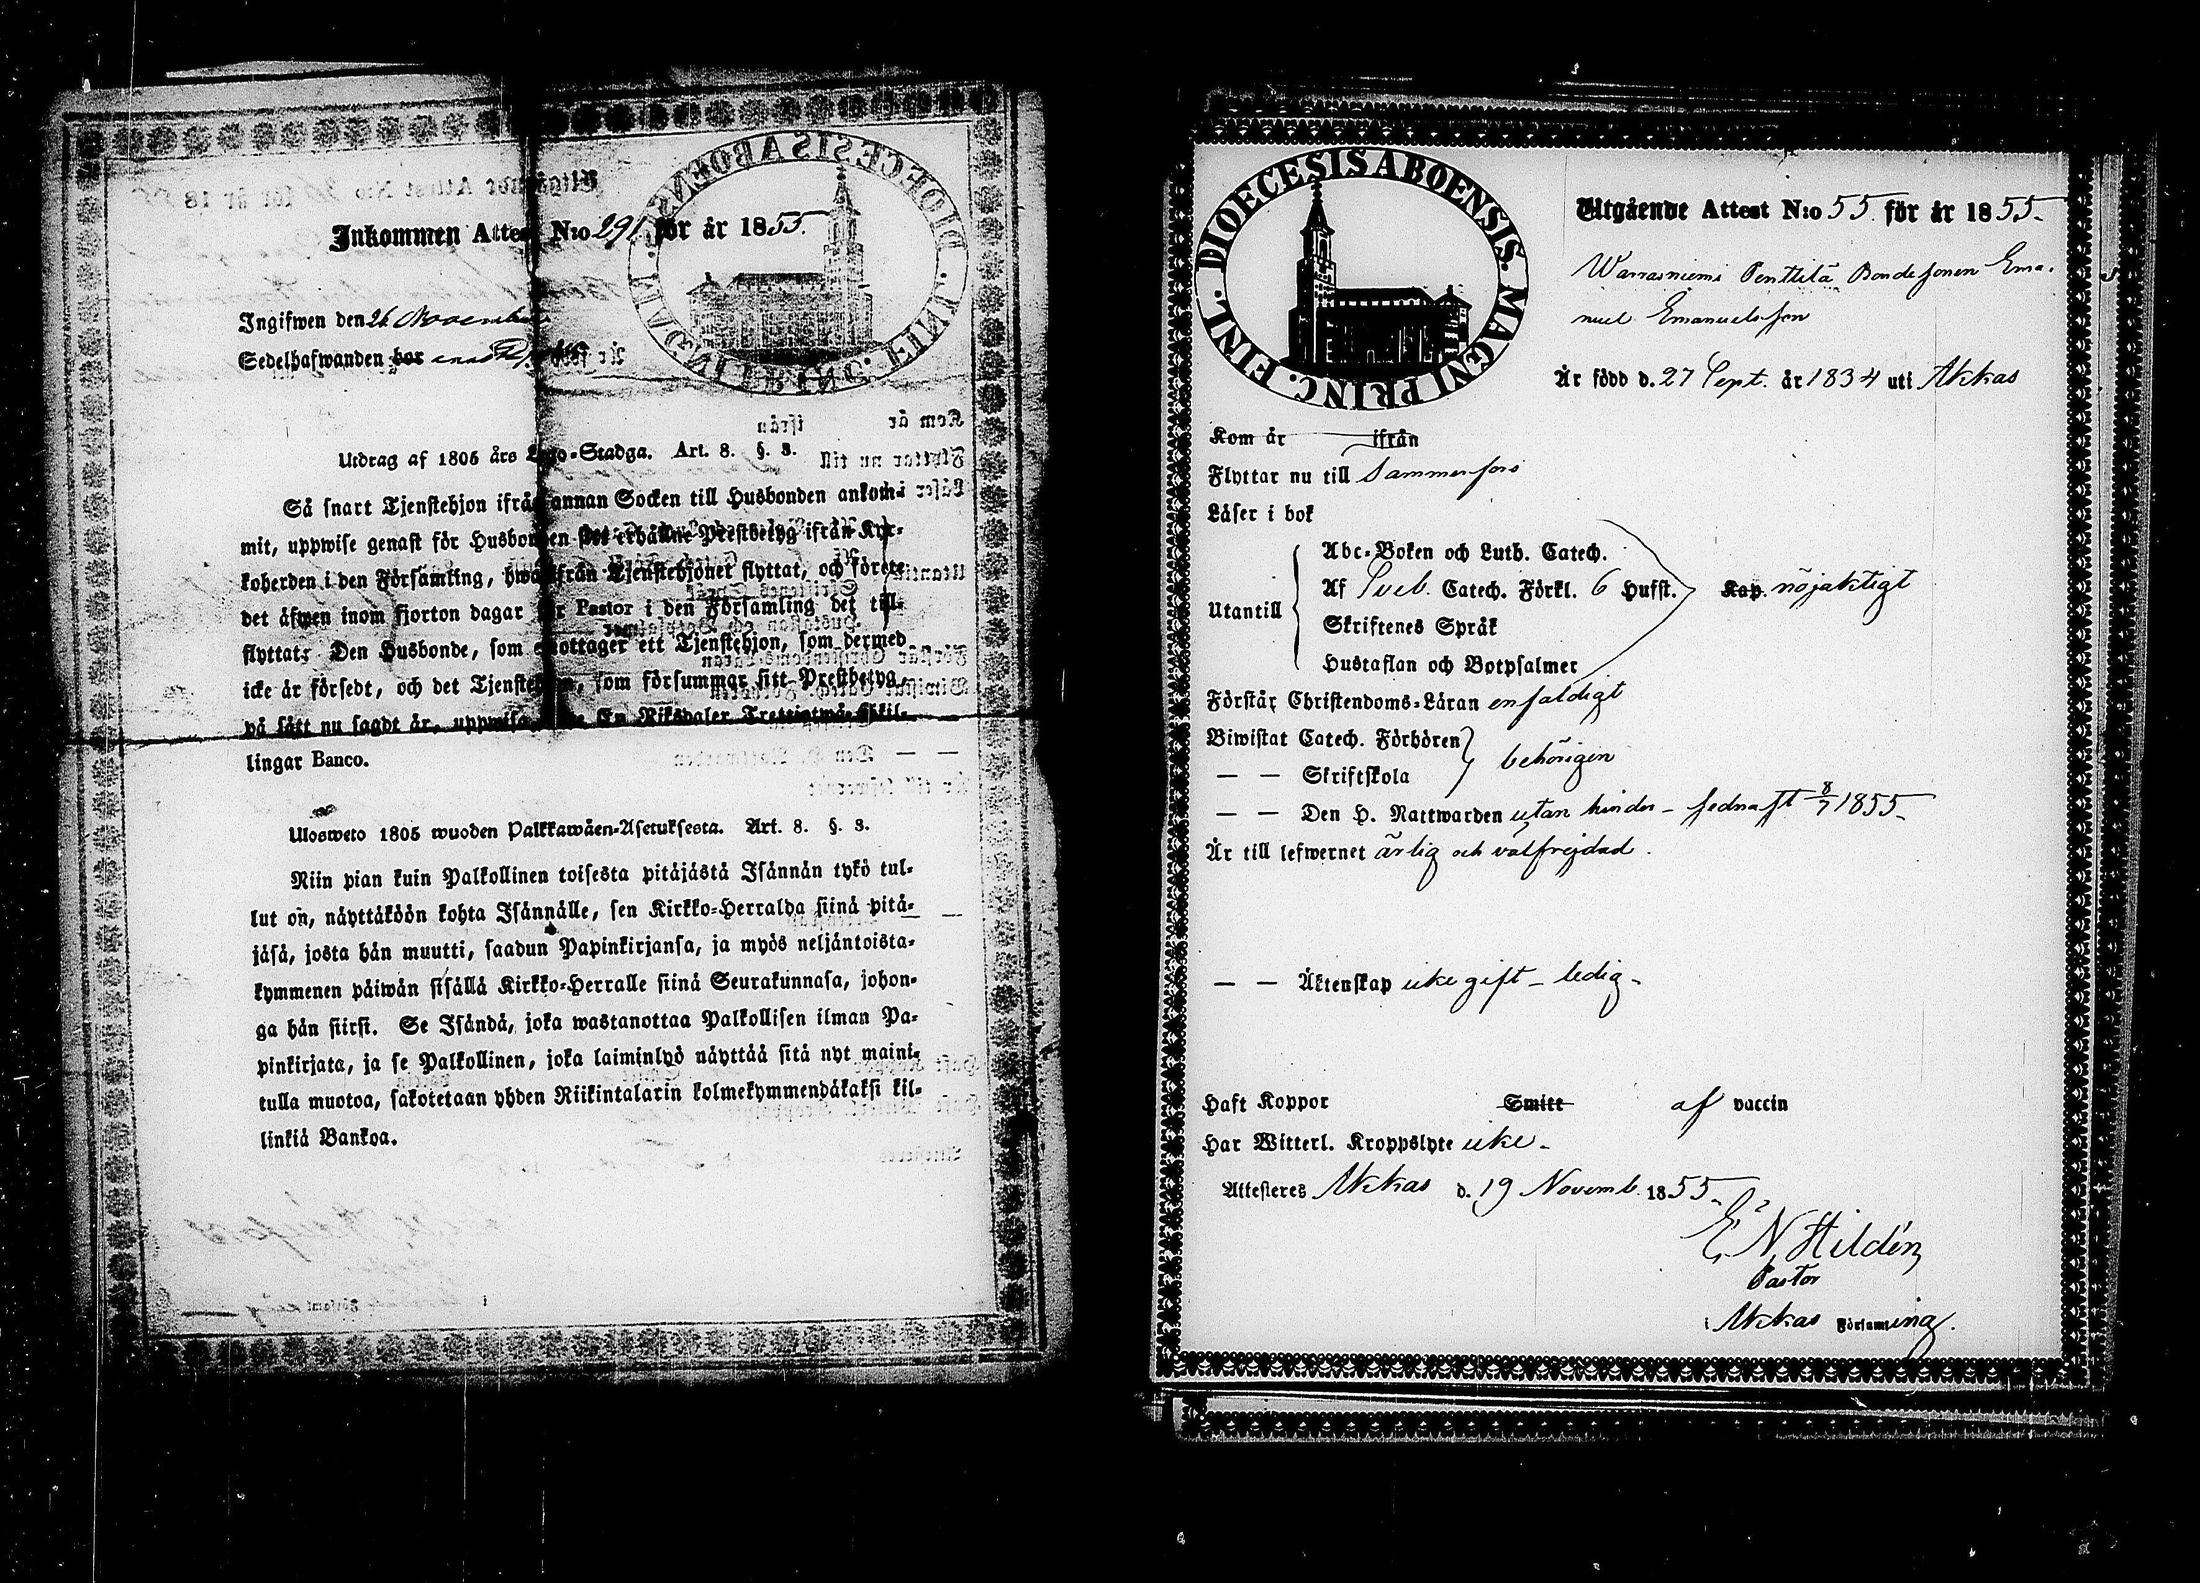 Inkommen Attest N:o 291 för år 1855.
Ingifwen den 26 November
Sedelhafwanden bor
Utdrag af 1805 års Lego-Stadga. Art. 8. §. 3.
Så snart Tjenstehjon ifrån annan Socken till Husbonden ankom-
mit, uppwise genast för Husbonden det erhållne Prestbetyg ifrån Kyr-
koherden i den Församling, hwarifrån Tjenstehjonet flyttat, och förete
det äfwen inom fjorton dagar för Pastor i den Församling det till-
flyttat. Den Husbonde, som emottager ett Tjenstehjon, som dermed
icke är försedt, och det Tjenstehjon, som försummar sitt Prestbetyg,
på sätt nu sagdt är, uppwisa, En Riksdaler Trettiotwå Skil-
lingar Banco.
Ulosweto 1805 wuoden Palkkawäen-Asetuksesta. Art. 8. §. 3.
Niin pian kuin Palkollinen toisesta pitäjästä Isännän tykö tul-
lut on, näyttäköön kohta Isännälle, sen Kirkko-Herralda siinä pitä-
jäsä, josta hän muutti, saadun Papinkirjansa, ja myös neljäntoista-
kymmenen päiwän sisällä Kirkko-Herralle siinä Seurakunnasa, johon-
ga hän siirsi. Se Isändä, joka wastanottaa Palkollisen ilman Pa-
pinkirjata, ja se Palkollinen, joka laiminlyö näyttää sitä nyt maini-
tulla muotoa, sakotetaan yhden Riikintalarin kolmekymmendäkaksi kil-
linkiä Bankoa.
DIOECESIS ABOENSIS. MAGNI PRINC. FINL.
Utgående Attest N:o 55 för år 1855.
Warrasniemi Penttilä Bondesonen Ema-
nuel Emanuelsson
Är född d. 27 Sept. år 1834 uti Akkas
Kom år ifrån
Flyttar nu till Tammerfors
Läser i bok
Utantill
Abc-Boken och Luth. Catech.
Af Sveb. Catech. Förkl. 6 Hufst. Kap. nöjaktigt
Skriftenes Språk
Hustaflan och Botpsalmer
Förstår Christendoms-Läran enfaldigt
Biwistat Catech. Förhören
— — Skriftskola behörigen
— — Den H. Nattwarden utan hinder - sednast 8/7 1855-
Är till lefwernet ärlig och välfrejdad.
— — Äktenskap icke gift - ledig -
Haft Koppor Smitt af vaccin
Har Witterl. Kroppslyte icke -
Attesteres Akkas d. 19 Novemb. 1855.
E. N. Hildén
Pastor
i Akkas Församling.